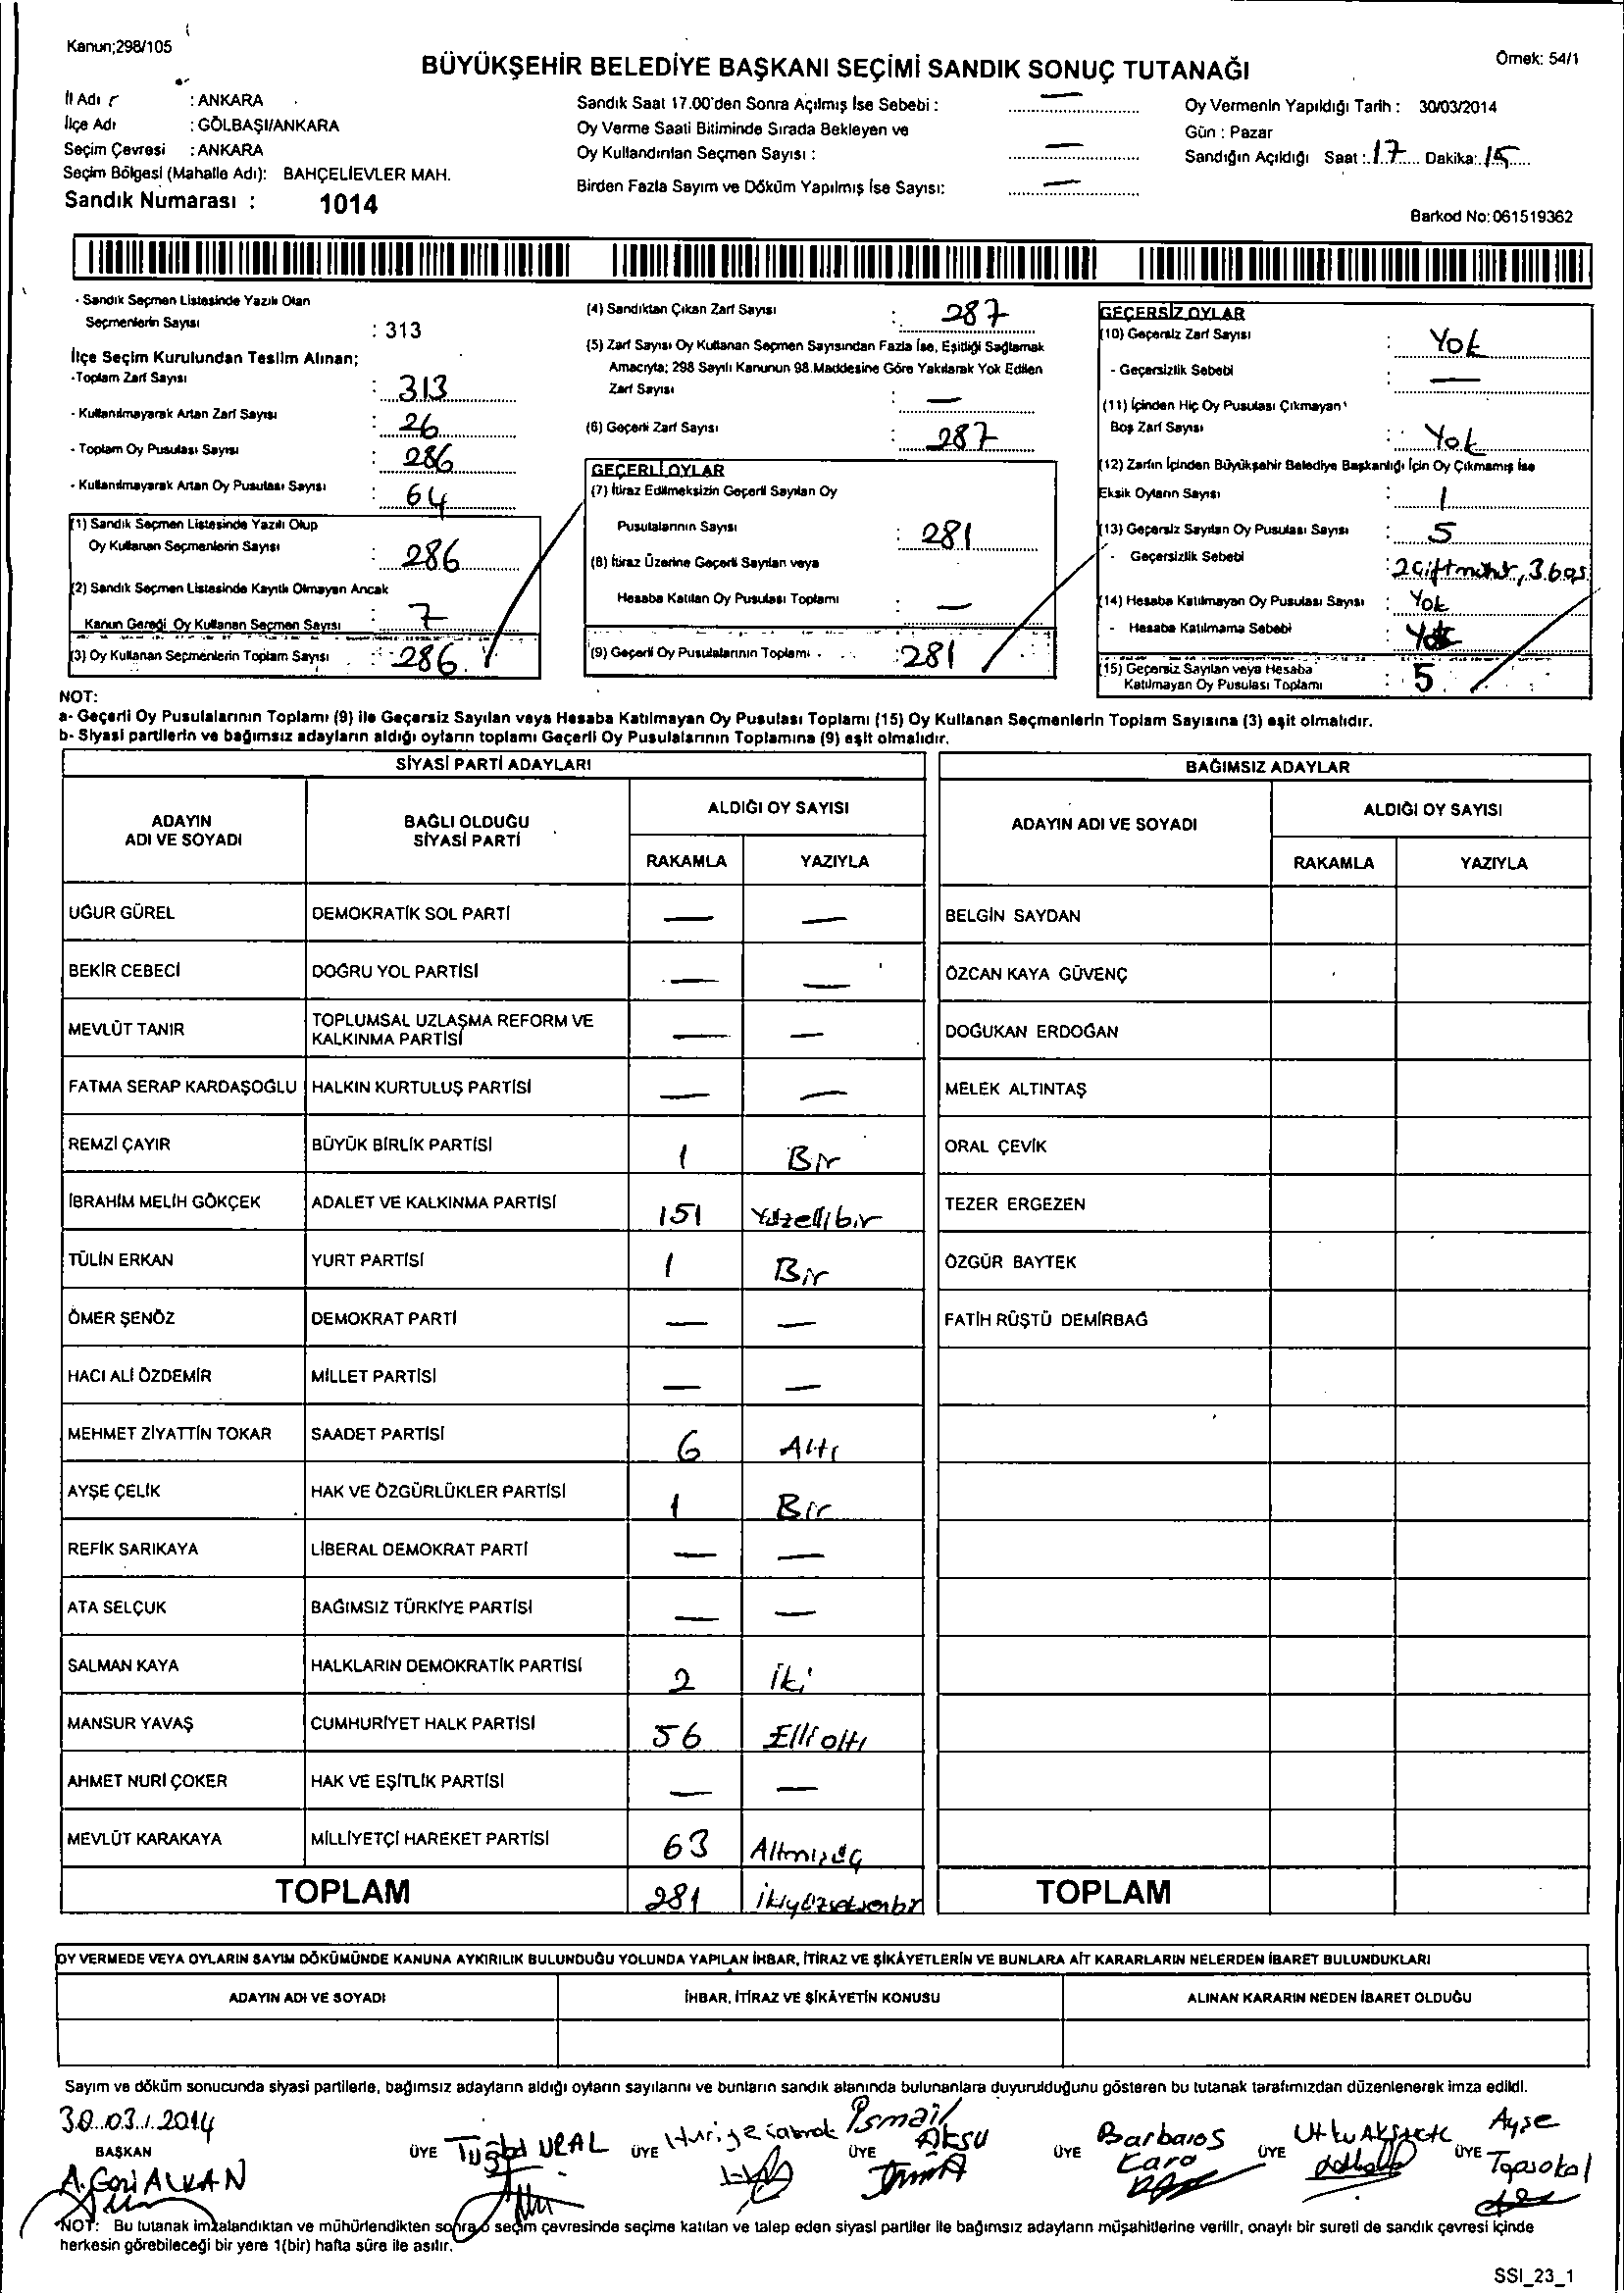 Kanun;298/105
BÜYÜKŞEHİR BELEDİYE BAŞKANI SEÇİMİ SANDIK SONUÇ TUTANAĞI
Örnek: 54/1
İl Adı : ANKARA
İlçe Adı : GÖLBAŞI/ANKARA
Seçim Çevresi : ANKARA
Seçim Bölgesi (Mahalle Adı): BAHÇELİEVLER MAH.
Sandık Numarası : 1014
Sandık Saat 17.00'den Sonra Açılmış İse Sebebi : —
Oy Verme Saati Bitiminde Sırada Bekleyen ve
Oy Kullandırılan Seçmen Sayısı : —
Birden Fazla Sayım ve Döküm Yapılmış İse Sayısı: —
Oy Vermenin Yapıldığı Tarih : 30/03/2014
Gün : Pazar
Sandığın Açıldığı Saat : 17 Dakika: 15
Barkod No: 061519362
- Sandık Seçmen Listesinde Yazılı Olan
Seçmenlerin Sayısı : 313
İlçe Seçim Kurulundan Teslim Alınan;
-Toplam Zarf Sayısı : 313
- Kullanılmayarak Artan Zarf Sayısı : 26
- Toplam Oy Pusulası Sayısı : 286
- Kullanılmayarak Artan Oy Pusulası Sayısı : 64
(1) Sandık Seçmen Listesinde Yazılı Olup
Oy Kullanan Seçmenlerin Sayısı : 286
(2) Sandık Seçmen Listesinde Kayıtlı Olmayan Ancak
Kanun Gereği Oy Kullanan Seçmen Sayısı : 7
(3) Oy Kullanan Seçmenlerin Toplam Sayısı : 286
(4) Sandıktan Çıkan Zarf Sayısı : 287
(5) Zarf Sayısı Oy Kullanan Seçmen Sayısından Fazla İse, Eşitliği Sağlamak
Amacıyla; 298 Sayılı Kanunun 98.Maddesine Göre Yakılarak Yok Edilen
Zarf Sayısı : —
(6) Geçerli Zarf Sayısı : 287
GEÇERLİ OYLAR
(7) İtiraz Edilmeksizin Geçerli Sayılan Oy
Pusulalarının Sayısı : 281
(8) İtiraz Üzerine Geçerli Sayılan veya
Hesaba Katılan Oy Pusulası Toplamı : —
(9) Geçerli Oy Pusulalarının Toplamı : 281
GEÇERSİZ OYLAR
(10) Geçersiz Zarf Sayısı : Yok
- Geçersizlik Sebebi : —
(11) İçinden Hiç Oy Pusulası Çıkmayan
Boş Zarf Sayısı : Yok
(12) Zarfın İçinden Büyükşehir Belediye Başkanlığı İçin Oy Çıkmamış İse
Eksik Oyların Sayısı : 1
(13) Geçersiz Sayılan Oy Pusulası Sayısı : 5
- Geçersizlik Sebebi : 2 çift mühür, 3 boş
(14) Hesaba Katılmayan Oy Pusulası Sayısı : Yok
- Hesaba Katılmama Sebebi : Yok
(15) Geçersiz Sayılan veya Hesaba
Katılmayan Oy Pusulası Toplamı : 5
NOT:
a- Geçerli Oy Pusulalarının Toplamı (9) ile Geçersiz Sayılan veya Hesaba Katılmayan Oy Pusulası Toplamı (15) Oy Kullanan Seçmenlerin Toplam Sayısına (3) eşit olmalıdır.
b- Siyasi partilerin ve bağımsız adayların aldığı oyların toplamı Geçerli Oy Pusulalarının Toplamına (9) eşit olmalıdır.
SİYASİ PARTİ ADAYLARI
ADAYIN ADI VE SOYADI
BAĞLI OLDUĞU SİYASİ PARTİ
ALDIĞI OY SAYISI
RAKAMLA YAZIYLA
UĞUR GÜREL DEMOKRATİK SOL PARTİ — —
BEKİR CEBECİ DOĞRU YOL PARTİSİ — —
MEVLÜT TANIR TOPLUMSAL UZLAŞMA REFORM VE KALKINMA PARTİSİ — —
FATMA SERAP KARDAŞOĞLU HALKIN KURTULUŞ PARTİSİ — —
REMZİ ÇAYIR BÜYÜK BİRLİK PARTİSİ 1 Bir
İBRAHİM MELİH GÖKÇEK ADALET VE KALKINMA PARTİSİ 151 Yüzellibir
TÜLİN ERKAN YURT PARTİSİ 1 Bir
ÖMER ŞENÖZ DEMOKRAT PARTİ — —
HACI ALİ ÖZDEMİR MİLLET PARTİSİ — —
MEHMET ZİYATTİN TOKAR SAADET PARTİSİ 6 Altı
AYŞE ÇELİK HAK VE ÖZGÜRLÜKLER PARTİSİ 1 Bir
REFİK SARIKAYA LİBERAL DEMOKRAT PARTİ — —
ATA SELÇUK BAĞIMSIZ TÜRKİYE PARTİSİ — —
SALMAN KAYA HALKLARIN DEMOKRATİK PARTİSİ 2 iki
MANSUR YAVAŞ CUMHURİYET HALK PARTİSİ 56 Elli altı
AHMET NURİ ÇOKER HAK VE EŞİTLİK PARTİSİ — —
MEVLÜT KARAKAYA MİLLİYETÇİ HAREKET PARTİSİ 63 Altmışüç
TOPLAM 281 ikiyüzseksenbir
BAĞIMSIZ ADAYLAR
ADAYIN ADI VE SOYADI
ALDIĞI OY SAYISI
RAKAMLA YAZIYLA
BELGİN SAYDAN
ÖZCAN KAYA GÜVENÇ
DOĞUKAN ERDOĞAN
MELEK ALTINTAŞ
ORAL ÇEVİK
TEZER ERGEZEN
ÖZGÜR BAYTEK
FATİH RÜŞTÜ DEMİRBAĞ
TOPLAM
OY VERMEDE VEYA OYLARIN SAYIM DÖKÜMÜNDE KANUNA AYKIRILIK BULUNDUĞU YOLUNDA YAPILAN İHBAR, İTİRAZ VE ŞİKÂYETLERİN VE BUNLARA AİT KARARLARIN NELERDEN İBARET BULUNDUKLARI
ADAYIN ADI VE SOYADI
İHBAR, İTİRAZ VE ŞİKÂYETİN KONUSU
ALINAN KARARIN NEDEN İBARET OLDUĞU
Sayım ve döküm sonucunda siyasi partilerle, bağımsız adayların aldığı oyların sayılarını ve bunların sandık alanında bulunanlara duyurulduğunu gösteren bu tutanak tarafımızdan düzenlenerek imza edildi.
30.03.2014
BAŞKAN
ÜYE URAL
ÜYE Huriye
ÜYE İsmail AKSU
ÜYE Barbaros Kara
ÜYE Utku
ÜYE Ayşe
NOT: Bu tutanak imzalandıktan ve mühürlendikten sonra o seçim çevresinde seçime katılan ve talep eden siyasi partiler ile bağımsız adayların müşahitlerine verilir, onaylı bir sureti de sandık çevresi içinde
herkesin görebileceği bir yere 1(bir) hafta süre ile asılır.
SSI_23_1